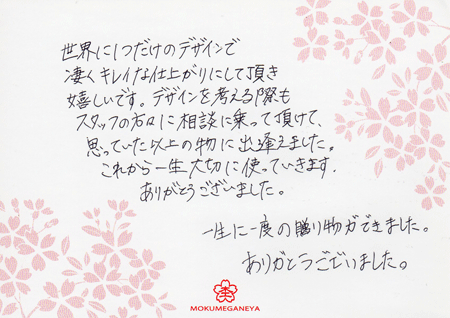 世界に1つだけのデザインで
凄くキレイな仕上がりにして頂き
嬉しいです。デザインを考える際も
スタッフの方々に相談に乗って頂けて、
思っていた以上の物に出逢えました。
これから一生大切に使っていきます.
ありがとうございました。
一生に一度の贈り物ができました。
ありがとうございました。
MOKUMEGANEYA